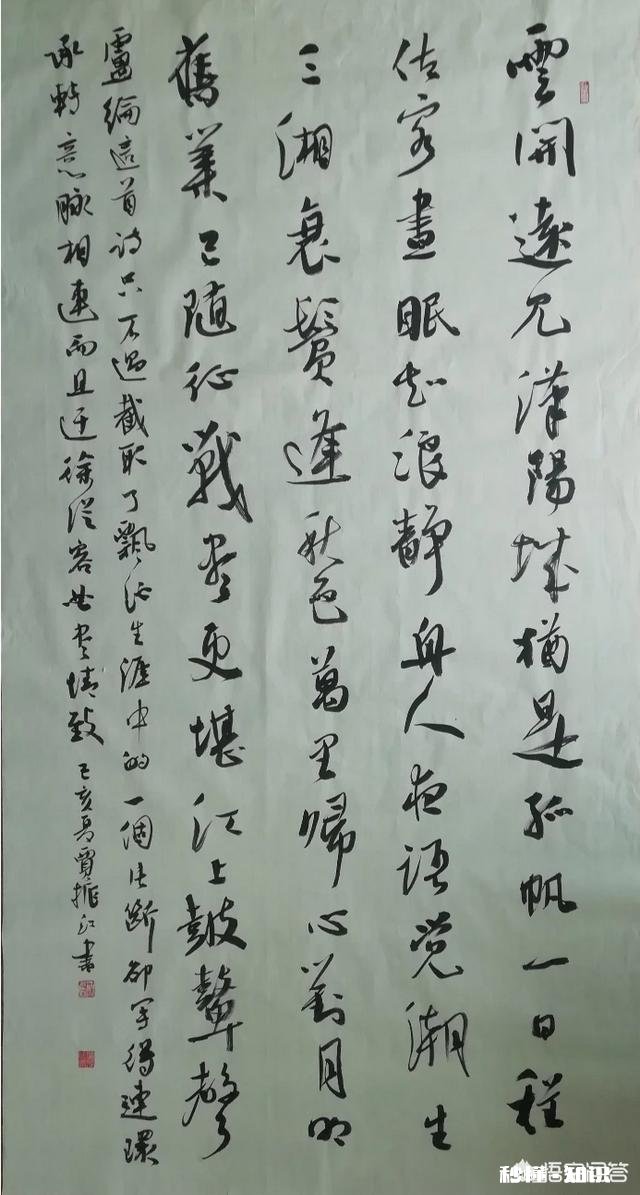 雲開遠見漢陽城猶是孤帆一日程
估客晝眠知浪靜舟人夜語覺潮生
三湘衰鬢逢秋色萬里歸心對月明
舊業已隨征戰盡更堪江上鼓鼙聲
盧綸這首詩只不過截取了飄泛生涯中的一個片斷卻寫得連環
承轉意脉相連而且迂徐從容曲盡情致 己亥賈振江書
悟空问答
秒懂·知识